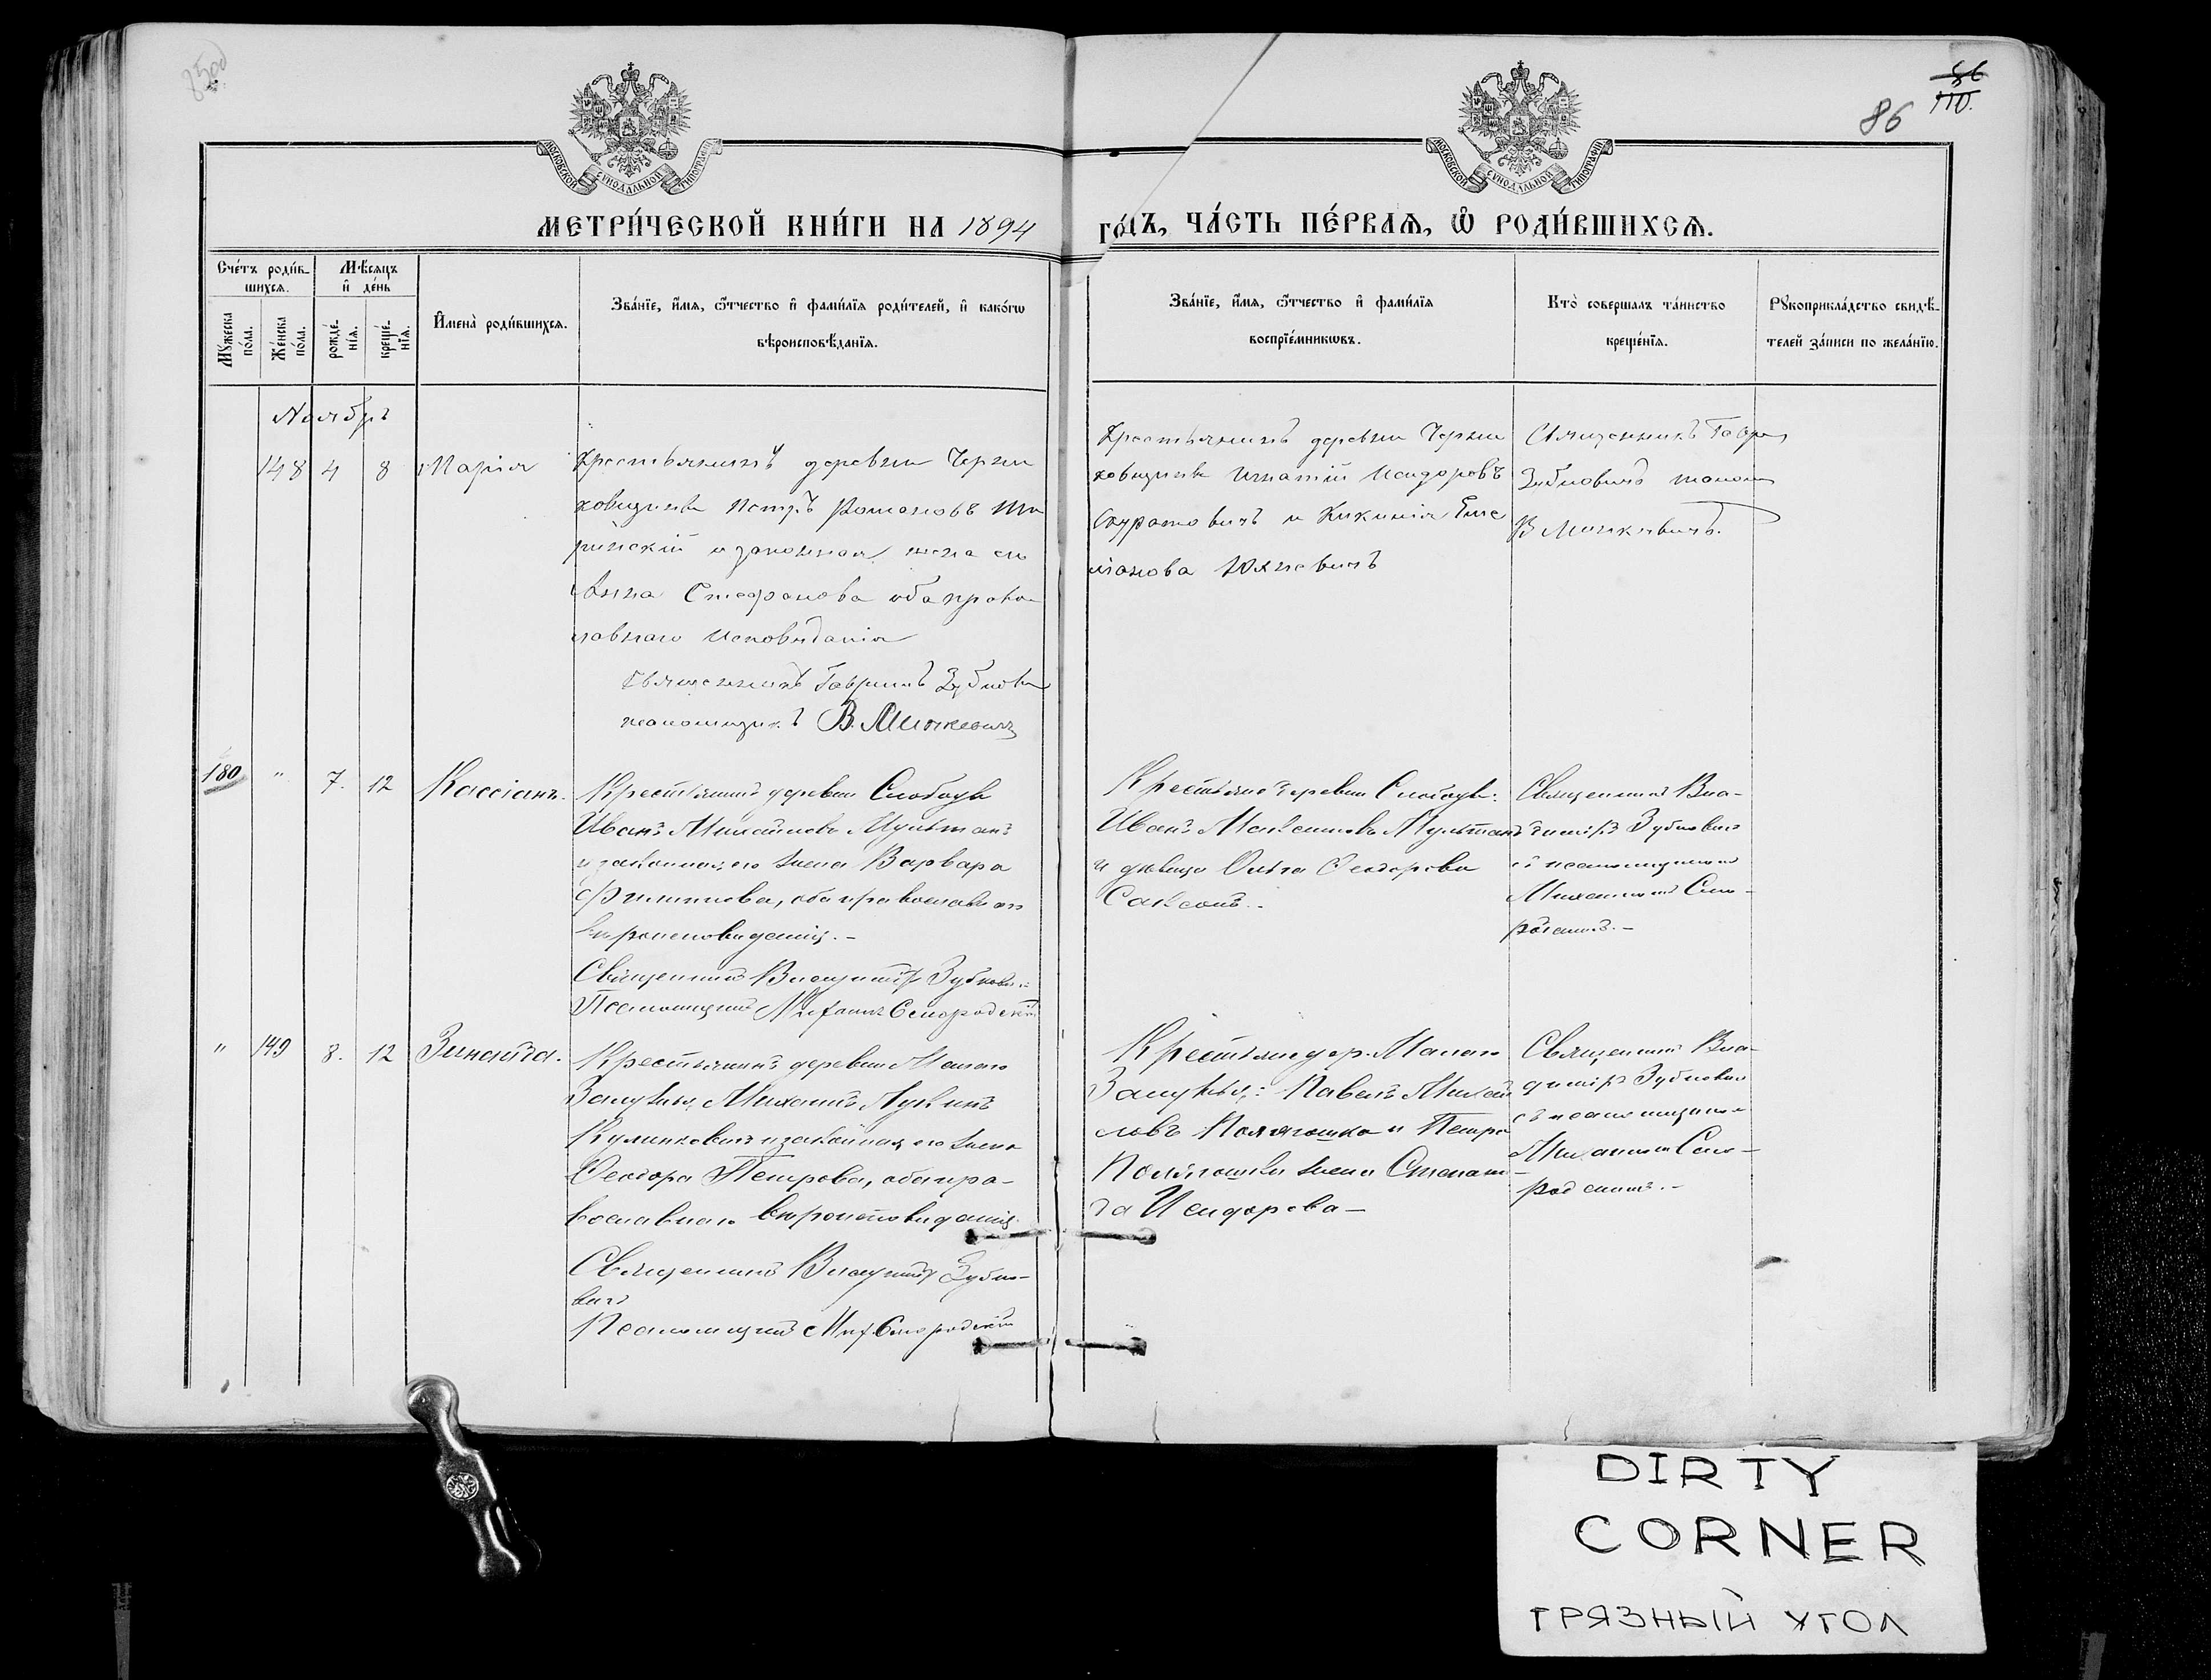 86
110.
86
МОСКОВСКОЙ СУНОДАЛЬНОЙ ТИПОГРАФІИ
МОСКОВСКОЙ СУНОДАЛЬНОЙ ТИПОГРАФІИ
МЕТРИ́ЧЕСКОЙ КНИ́ГИ НА 1894 ГО́ДЪ, ЧА́СТЬ ПЕ́РВАѦ, Ѡ҆ РОДИ́ВШИХСѦ.
Сче́тъ роди́в-
шихсѧ.
Мꙋ́жеска по́ла.
Же́нска по́ла.
Мѣ́сѧцъ
и҆ де́нь
рожде́-
нїѧ.
креще́-
нїѧ.
И҆мена̀ роди́вшихсѧ.
Зва́нїе, и҆́мѧ, ѻ҆́тчество и҆ фами́лїѧ роди́телей, и҆ како́гѡ
вѣроисповѣ́данїѧ.
Зва́нїе, и҆́мѧ, ѻ҆́тчество и҆ фами́лїѧ
воспрїе́мникѡвъ.
Кто̀ соверша́лъ та́инство
креще́нїѧ.
Рꙋкоприкла́дство свидѣ́-
телей за́писи по жела́нїю.
Ноябрь
148 4 8 Марія
Крестьянинъ деревни Черни
ховщины Петръ Романовъ
и законная жена его
Анна Стефанова оба право
славнаго исповѣданія
Священникъ Гавріилъ Зубкови
псаломщикъ В. Минкевичъ
Крестьянинъ деревни Черни
ховщины Игнатій Исидоровъ
и
Юхневичъ
Священникъ Гавр
Зубковичъ
В Минкевичъ.
180 " 7. 12 Кассіанъ.
Крестьянинъ деревни Слободы
Иванъ Михайловъ Мультанъ
и законная его жена Варвара
Филиппова, оба православнаго
вѣроисповѣданія. -
Священникъ Владиміръ Зубкови
Псаломщикъ Михаилъ Смородскій
Крестьяне деревни Слободы:
Иванъ Максимовъ Мультанъ
и дѣвица Ольга Ѳеодорова
Саксонъ.
Священникъ Вла-
диміръ Зубковичъ
съ псаломщикомъ
Михаиломъ Смо-
родскимъ. -
" 149 8. 12 Зинаида.
Крестьянинъ деревни Малаго
Запужья, Михаилъ Лукинъ
Кулинковичъ и законная его жена
Ѳеодора Петрова, оба пра-
вославнаго вѣроисповѣданія.
Священникъ Владиміръ Зубко-
вичъ
Псаломщикъ Мих. Смородскій
Крестьяне дер. Малаго
Запужья: Павелъ Михай
ловъ Полягошко и Петра
Полягошки жена Степани-
да Исидорова -
Священникъ Вла-
диміръ Зубковичъ
съ псаломщикомъ
Михаиломъ Смо-
родскимъ. -
DIRTY
CORNER
ГРЯЗНЫЙ УГОЛ